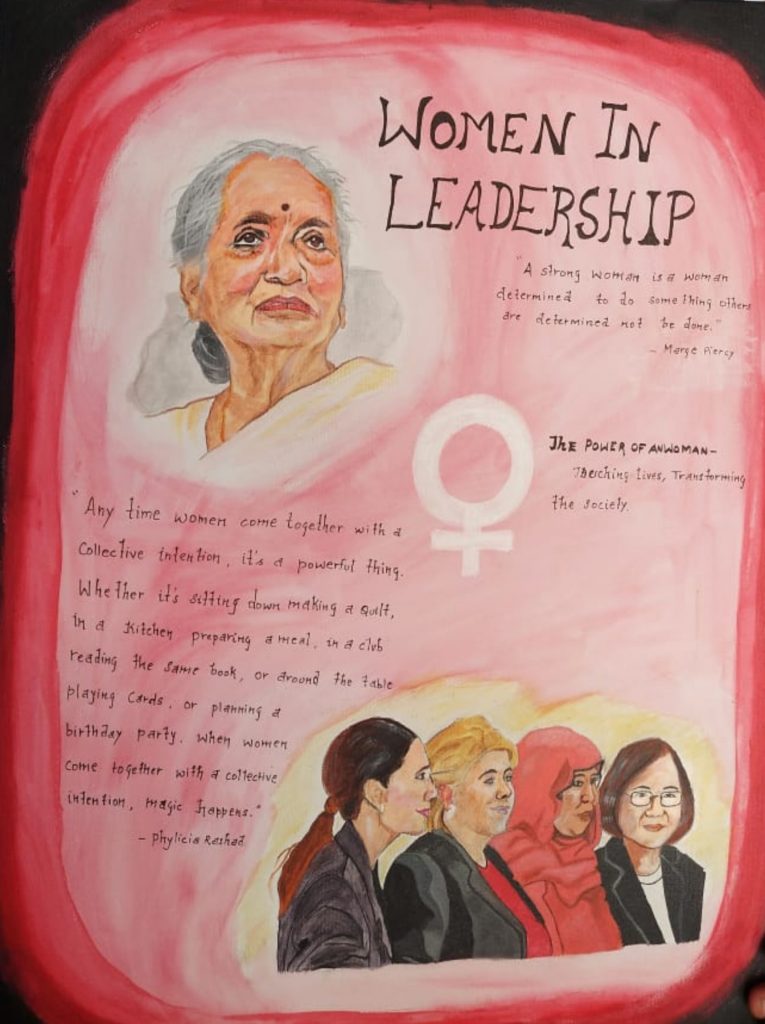 WOMEN IN
LEADERSHIP
"A strong woman is a woman
determined to do something others
are determined not be done."
- Marge Piercy
THE POWER OF ANWOMAN-
Teaching Lives, Transforming
the society.
"Any time women come together with a
collective intention, it's a powerful thing.
Whether it's sitting down making a quilt,
in a kitchen preparing a meal, in a club
reading the same book, or around the table
playing cards, or planning a
birthday party. When women
come together with a collective
intention, magic happens."
- Phylicia Rashad